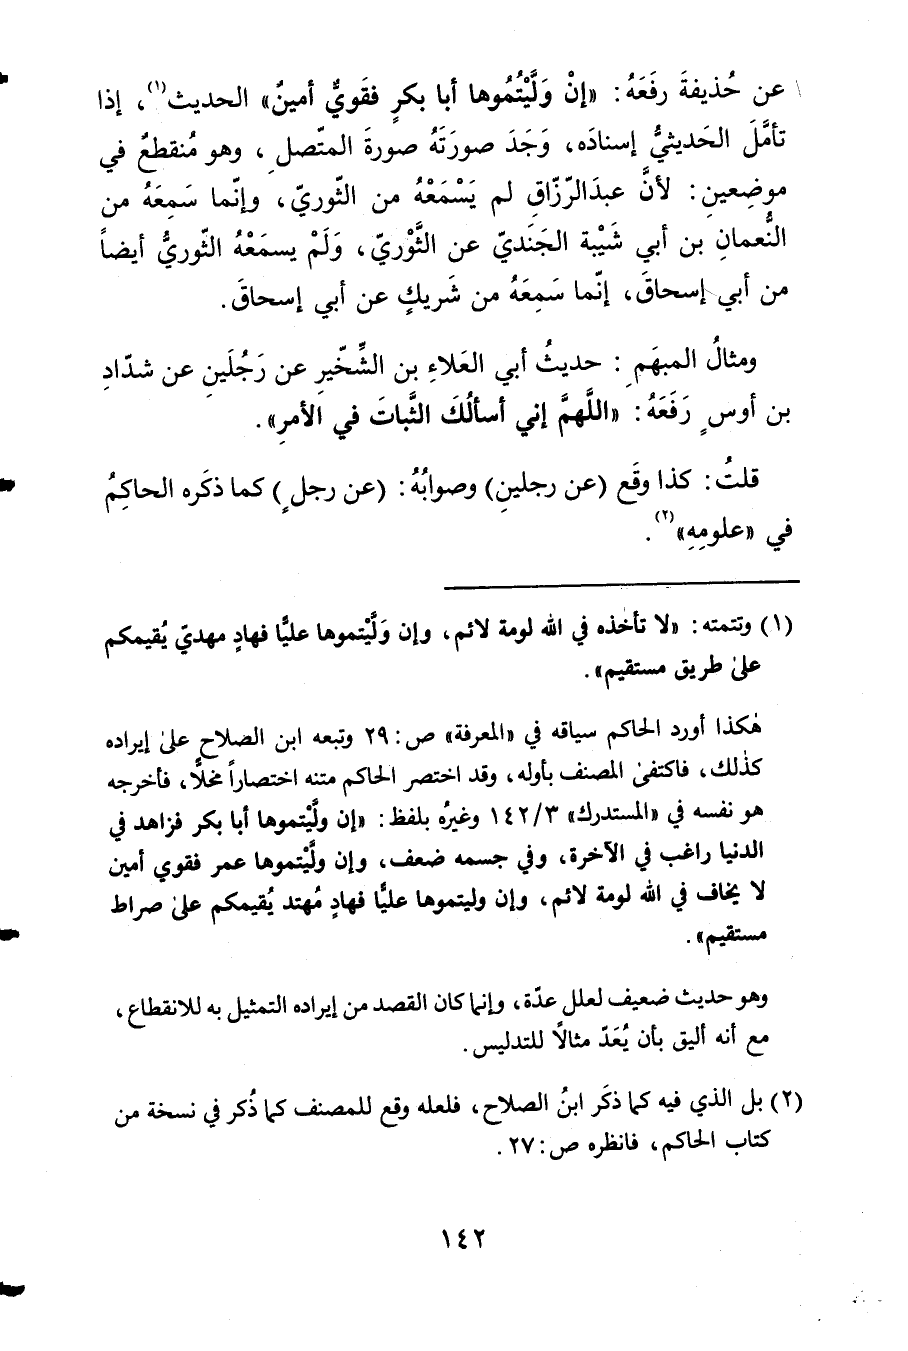 عن حُذيفةَ رفَعَهُ: «إنْ وَلَّيْتُمُوها أبا بكرٍ فقَويٌّ أمينٌ» الحديث(١)، إذا
تأمَّلَ الحَديثيُّ إسنادَه، وَجَدَ صورَتَهُ صورةَ المتّصلِ، وهو مُنقطعٌ في
موضعينِ: لأنَّ عبدَالرّزّاقِ لم يَسْمَعْهُ من الثّوريّ، وإنّما سَمِعَهُ من
النُّعمانِ بن أبي شَيْبة الجَنَديّ عن الثَّوْريّ، وَلَمْ يسمَعْهُ الثّوريُّ أيضاً
من أبي إسحاقَ، إنّما سَمِعَهُ من شَريكٍ عن أبي إسحاقَ.
ومثالُ المبهَمِ: حديثُ أبي العَلاءِ بن الشِّخّيرِ عن رَجُلَينِ عن شدّادِ
بن أوسٍ رَفَعَهُ: «اللَّهمَّ إني أسألُكَ الثَّباتَ في الأمرِ».
قلتُ: كذا وقَع (عن رجلينِ) وصوابُهُ: (عن رجلٍ) كما ذكَره الحاكِمُ
في «علومِهِ»(٢).
(١) وتتمته: «لا تأخذه في الله لومة لائم، وإن وَلَّيْتموها عليًّا فهادٍ مهديّ يُقيمكم
علىٰ طريق مستقيم».
هٰكذا أورد الحاكم سياقه في «المعرفة» ص: ٢٩ وتبعه ابن الصلاح علىٰ إيراده
كذٰلك، فاكتفىٰ المصنف بأوله، وقد اختصر الحاكم متنه اختصاراً مخلًّا، فأخرجه
هو نفسه في «المستدرك» ١٤٢/٣ وغيرُه بلفظ: «إن ولَّيْتموها أبا بكر فزاهد في
الدنيا راغب في الآخرة، وفي جسمه ضعف، وإن ولَّيْتموها عمر فقوي أمين
لا يخاف في الله لومة لائم، وإن وليتموها عليًّا فهادٍ مُهتد يُقيمكم علىٰ صراط
مستقيم».
وهو حديث ضعيف لعلل عدّة، وإنما كان القصد من إيراده التمثيل به للانقطاع،
مع أنه أليق بأن يُعَدّ مثالًا للتدليس.
(٢) بل الذي فيه كما ذكَر ابنُ الصلاح، فلعله وقع للمصنف كما ذُكر في نسخة من
كتاب الحاكم، فانظره ص: ٢٧.
١٤٢